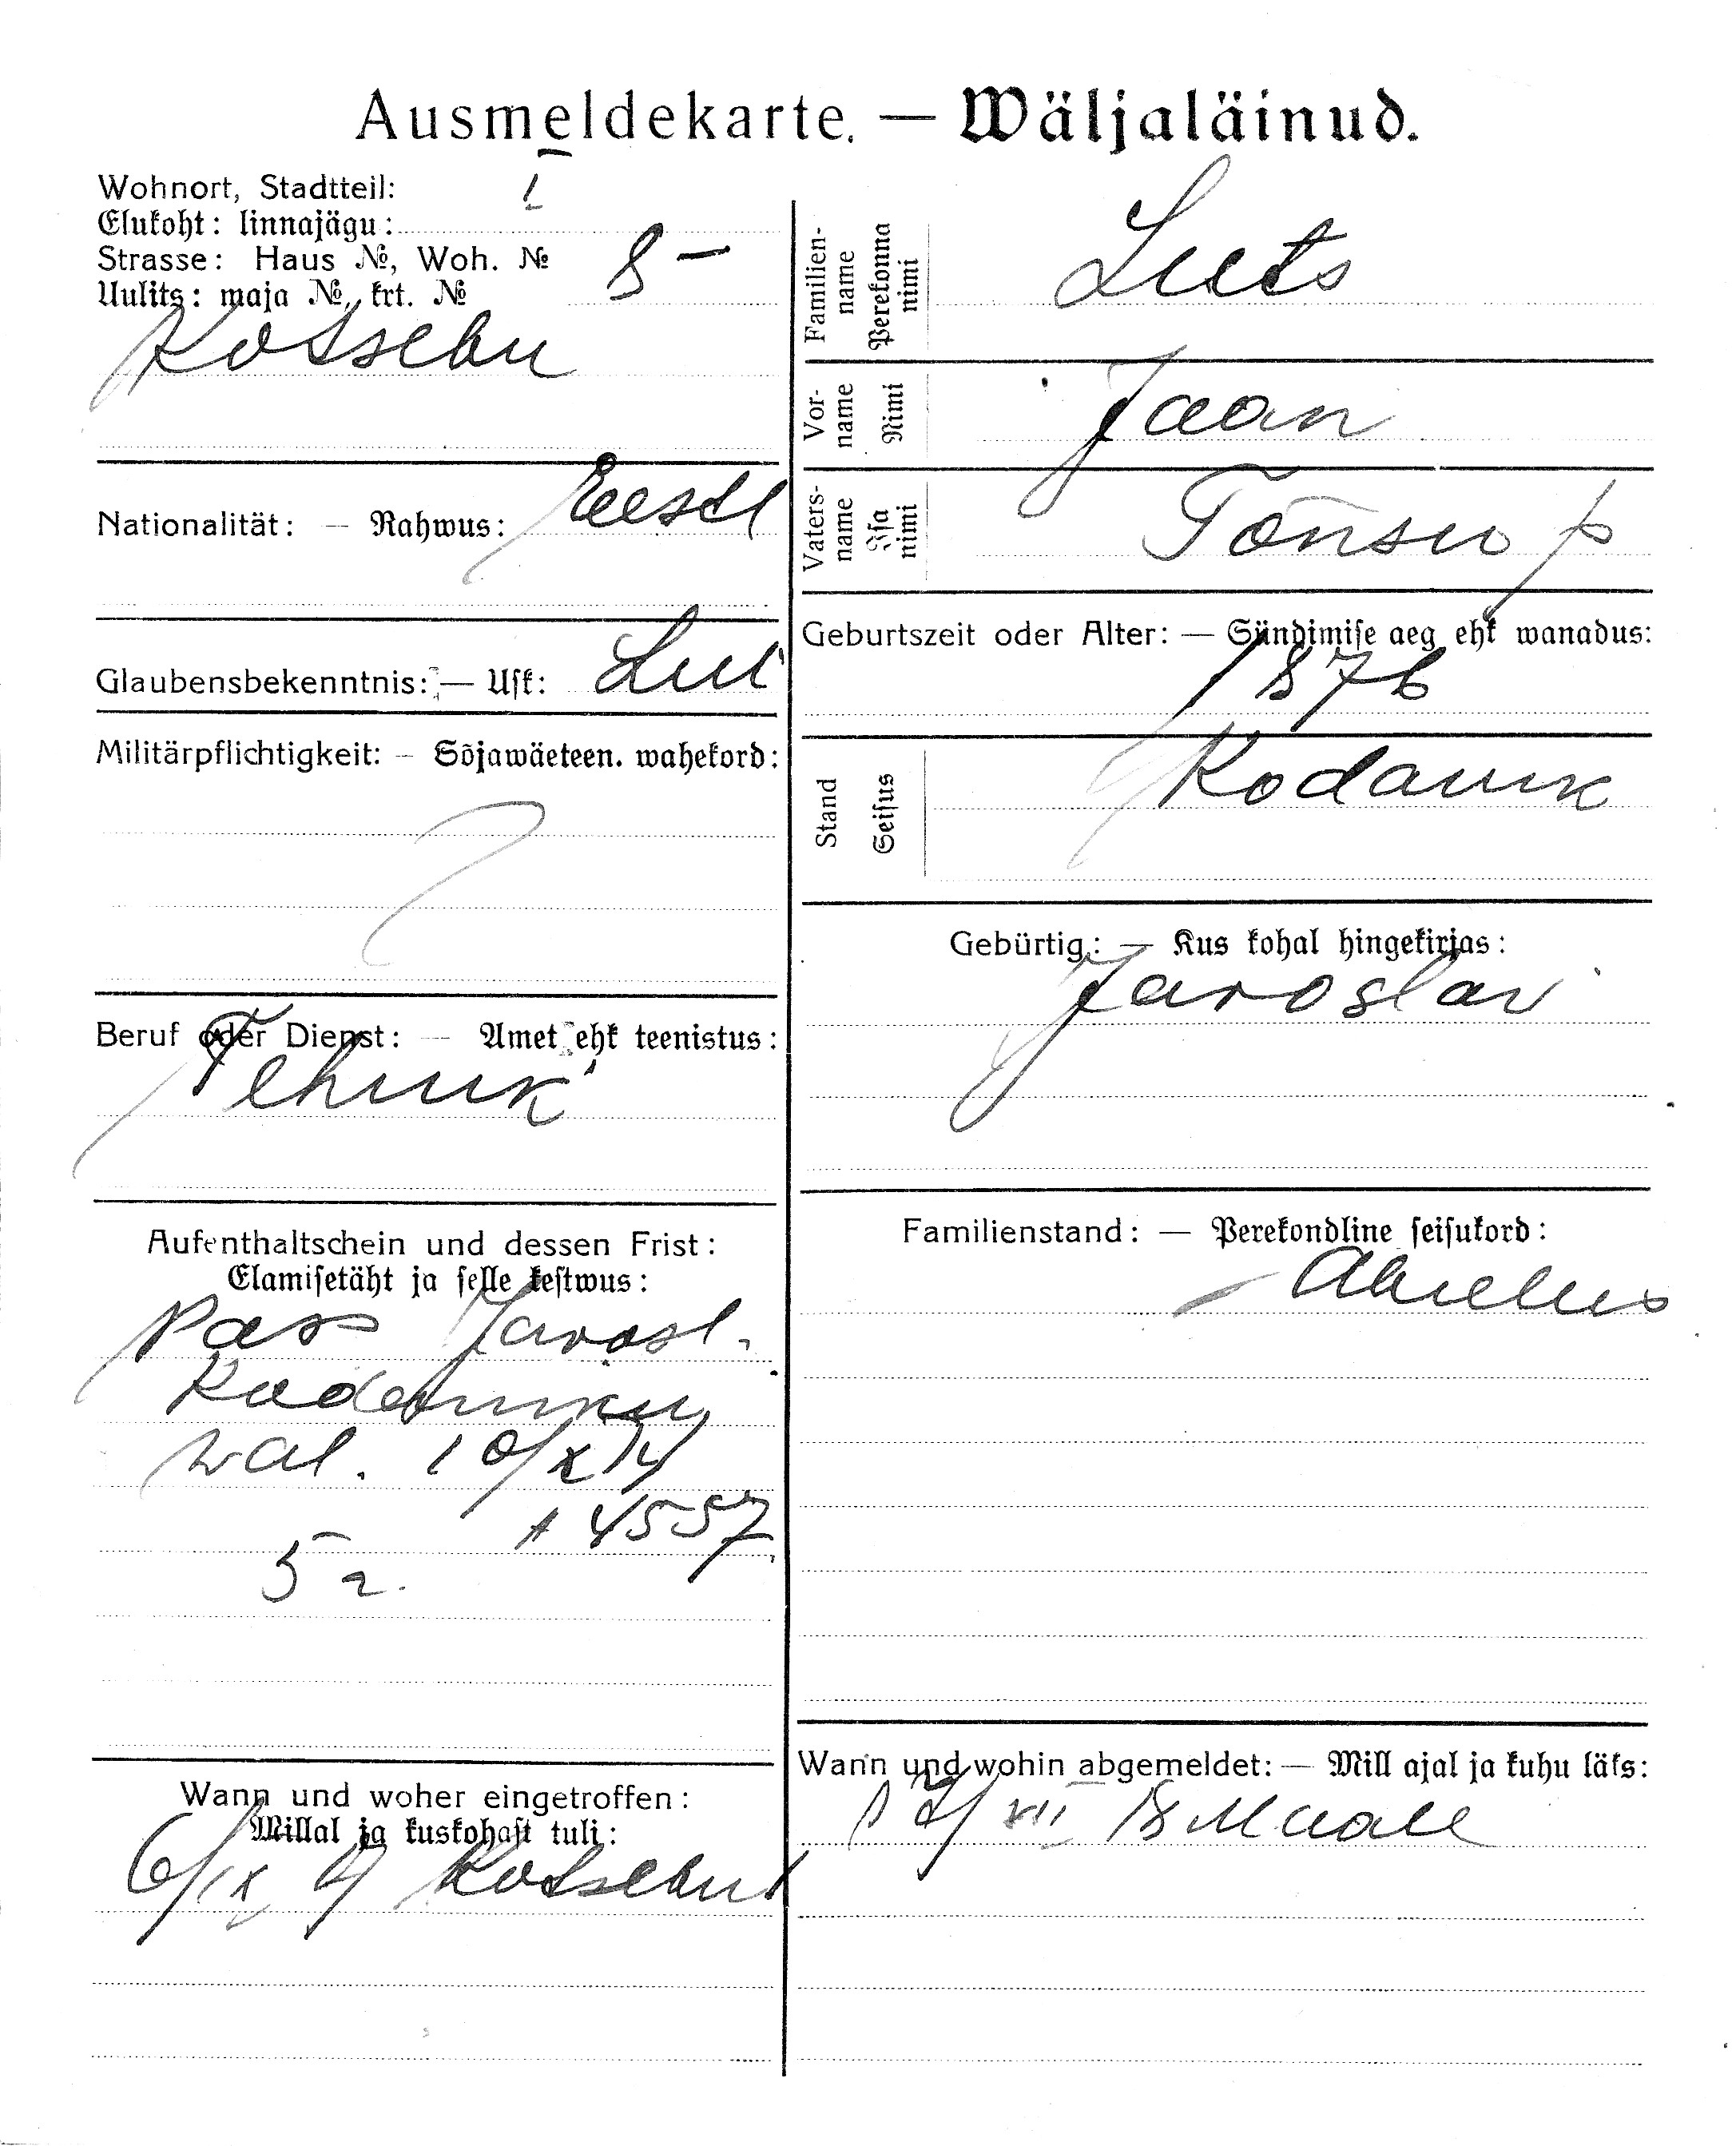 Ausmeldekarte. — Wäljaläinud.
Wohnort, Stadtteil: I
Elukoht: linnajägu:
Strasse: Haus №, Woh. № 8 –
Uulits: maja №, krt. №
Kotsebu
Nationalität: — Rahwus: Eesti
Glaubensbekenntnis: — Usk: Lut
Militärpflichtigkeit: — Sõjawäeteen. wahekord:
Beruf oder Dienst: — Amet ehk teenistus:
Tehnik
Aufenthaltschein und dessen Frist:
Elamisetäht ja selle kestwus:
Pass Jarosl.
Kodaniku
wal. 10/X 14
4557
5 a.
Wann und woher eingetroffen:
Millal ja kuskohast tuli:
6/IX Kotsebu
Familienname Perekonna nimi Luts
Vorname Nimi Jaan
Vatersname Isa nimi Tõnsu p
Geburtszeit oder Alter: — Sündimise aeg ehk wanadus:
1876
Stand Seisus Kodanik
Gebürtig: — Kus kohal hingekirjas:
Jaroslav
Familienstand: — Perekondline seisukord:
Abielus
Wann und wohin abgemeldet: — Mill ajal ja kuhu läks:
17/XII 18 Maale